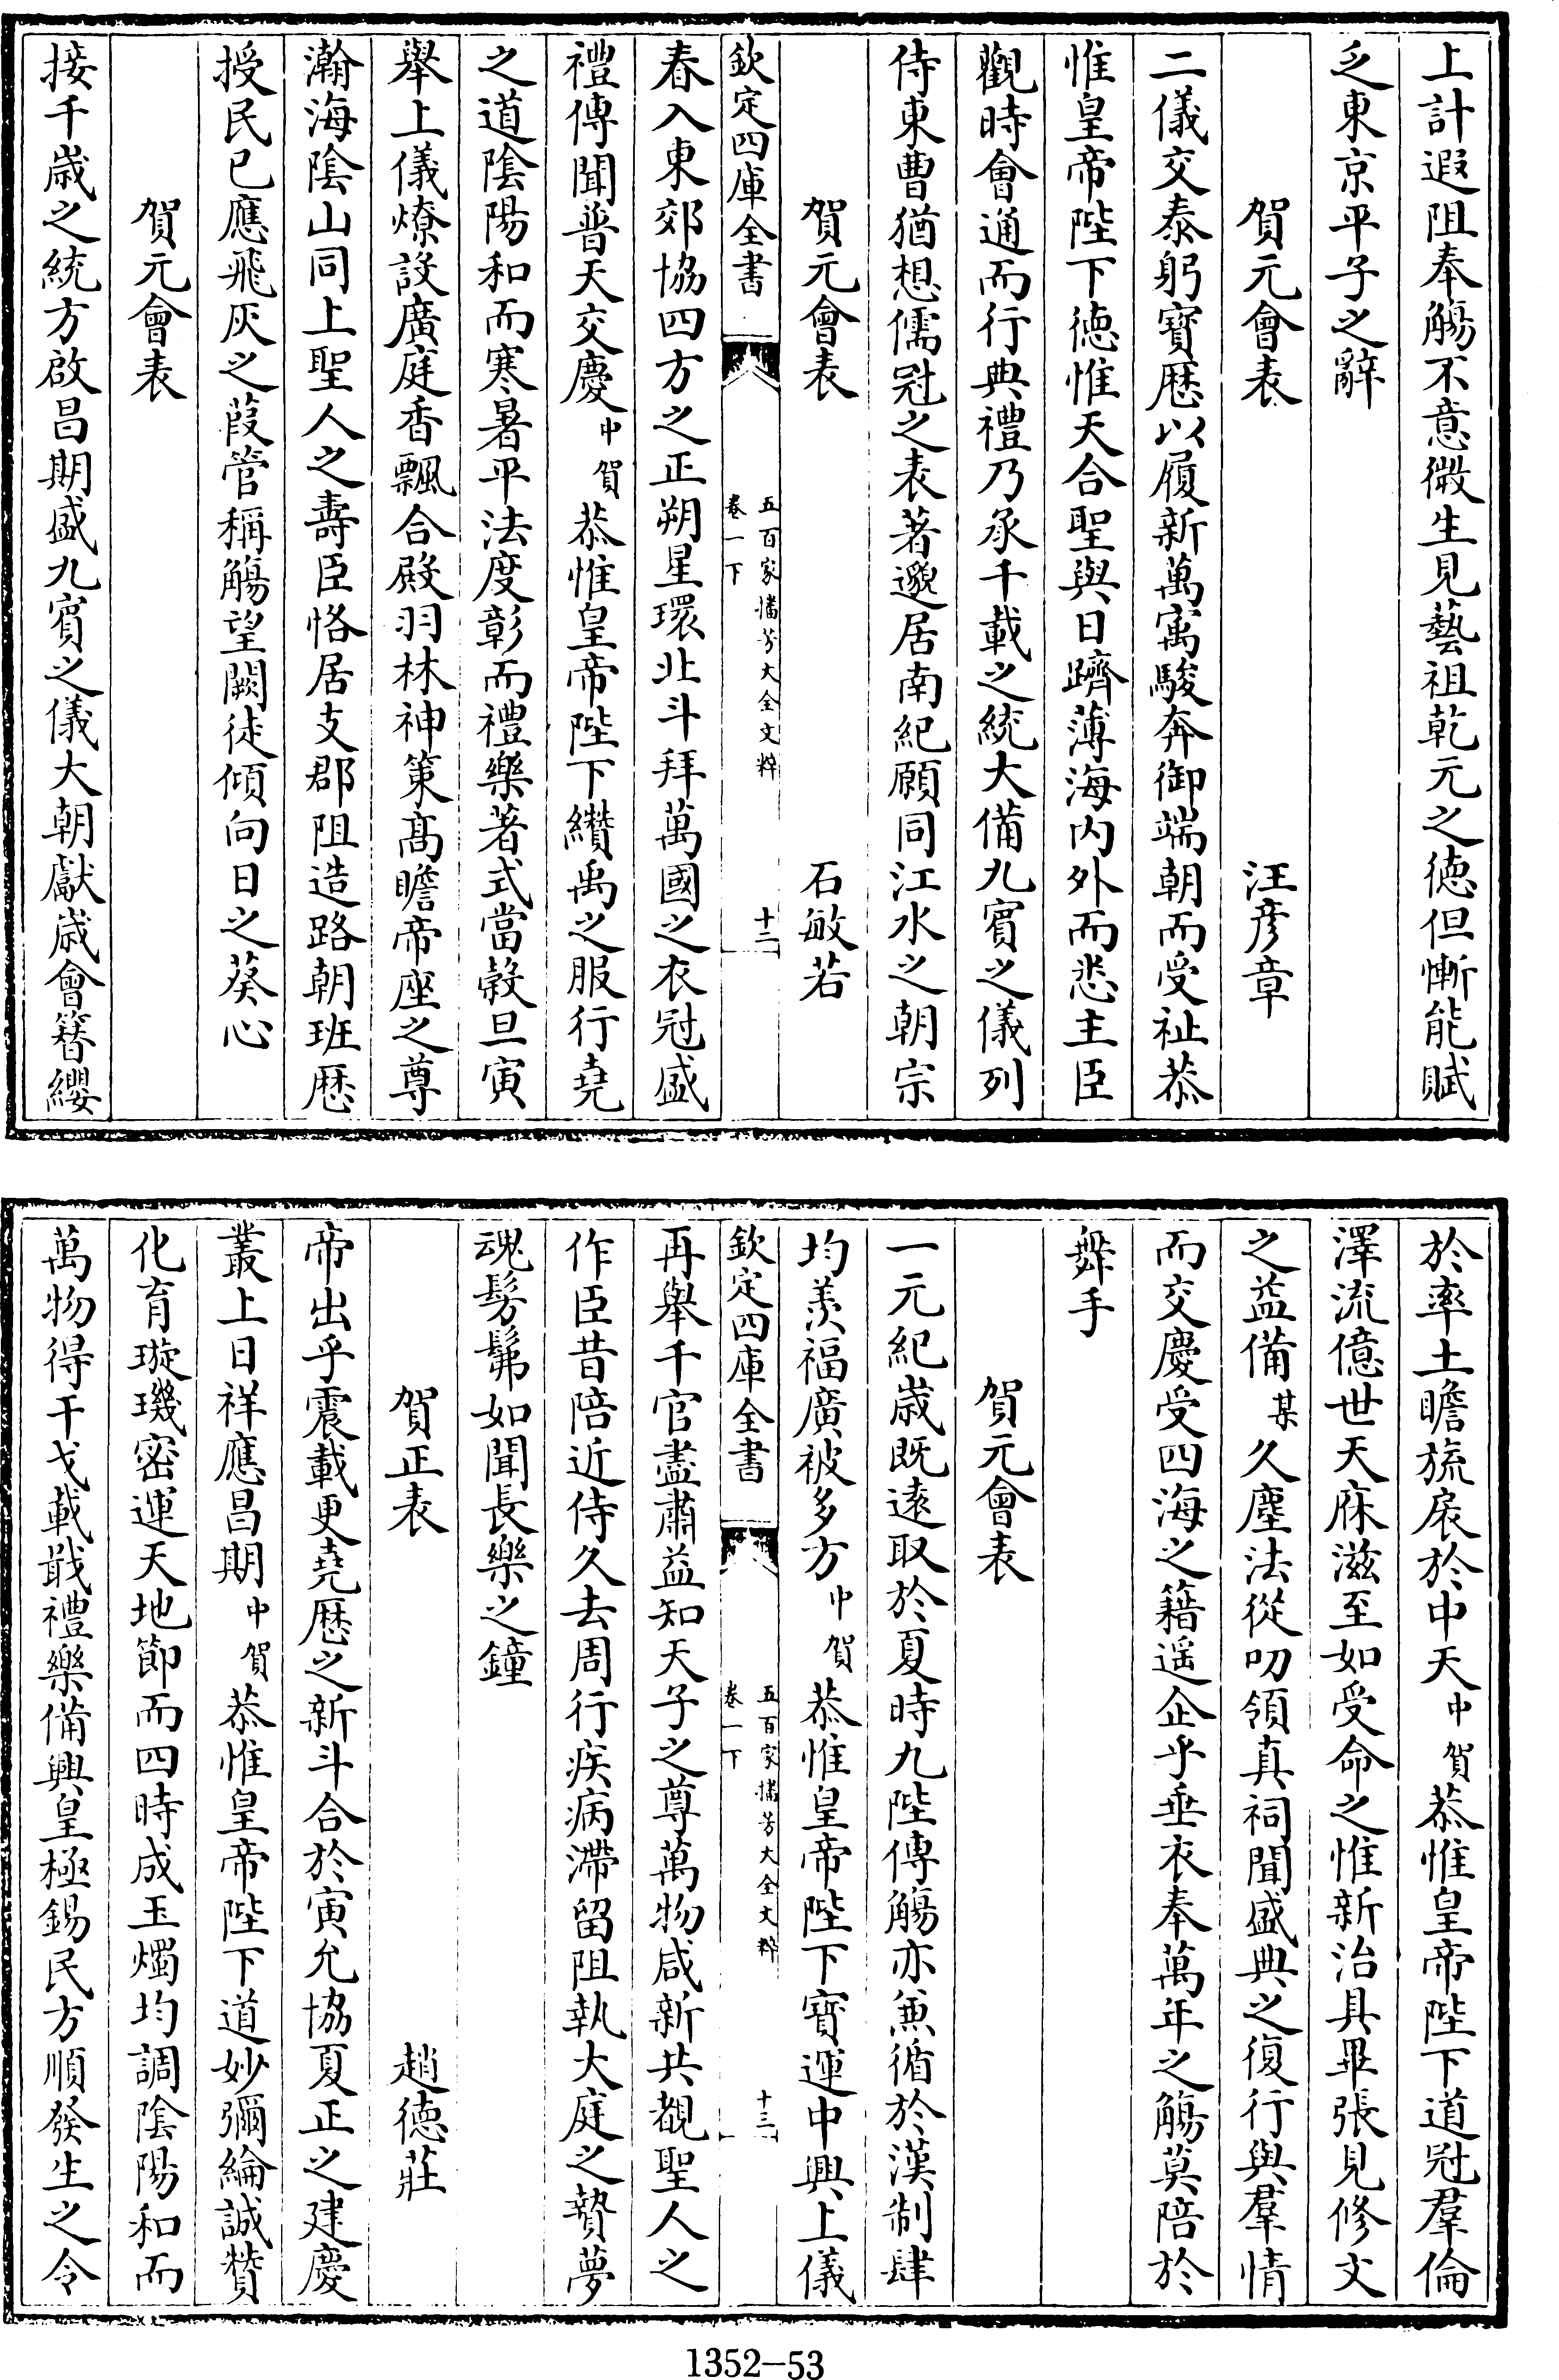 上計遐阻奉觴不意微生見藝祖乾元之德但慚能賦
乏東京平子之辭
賀元會表 汪彦章
二儀交泰躬寳厯以履新萬寓駿奔御端朝而受祉恭
惟皇帝陛下德惟天合聖與日躋薄海内外而悉主臣
觀時會通而行典禮乃承千載之統大備九賓之儀列
侍東曹猶想儒冠之表著邈居南紀願同江水之朝宗
賀元會表 石敏若
欽定四庫全書 五百家播芳大全文粹 卷一下 十二
春入東郊協四方之正朔星環北斗拜萬國之衣冠盛
禮傳聞普天交慶中賀恭惟皇帝陛下纘禹之服行堯
之道陰陽和而寒暑平法度彰而禮樂著式當穀旦寅
舉上儀燎設廣庭香飄合殿羽林神策髙瞻帝座之尊
瀚海陰山同上聖人之壽臣恪居支郡阻造路朝班厯
授民已應飛灰之葭管稱觴望闕徒傾向日之葵心
賀元會表
接千歲之統方啟昌期盛九賓之儀大朝獻歲會簪纓
於率土瞻旒扆於中天中賀恭惟皇帝陛下道冠羣倫
澤流億世天庥滋至如受命之惟新治具畢張見修文
之益備某久塵法從叨領真祠聞盛典之復行與羣情
而交慶受四海之籍遥企乎垂衣奉萬年之觴莫陪於
舞手
賀元會表
一元紀歲既逺取於夏時九陛傳觴亦兼循於漢制肆
均羨福廣被多方中賀恭惟皇帝陛下寳運中興上儀
欽定四庫全書 五百家播芳大全文粹 卷一下 十三
再舉千官盡肅益知天子之尊萬物咸新共覩聖人之
作臣昔陪近侍久去周行疾病滯留阻執大庭之贄夢
魂髣髴如聞長樂之鐘
賀正表 趙德莊
帝出乎震載更堯厯之新斗合於寅允協夏正之建慶
叢上日祥應昌期中賀恭惟皇帝陛下道妙彌綸誠贊
化育璇璣密運天地節而四時成玉燭均調陰陽和而
萬物得干戈載戢禮樂備興皇極錫民方順發生之令
1352-53